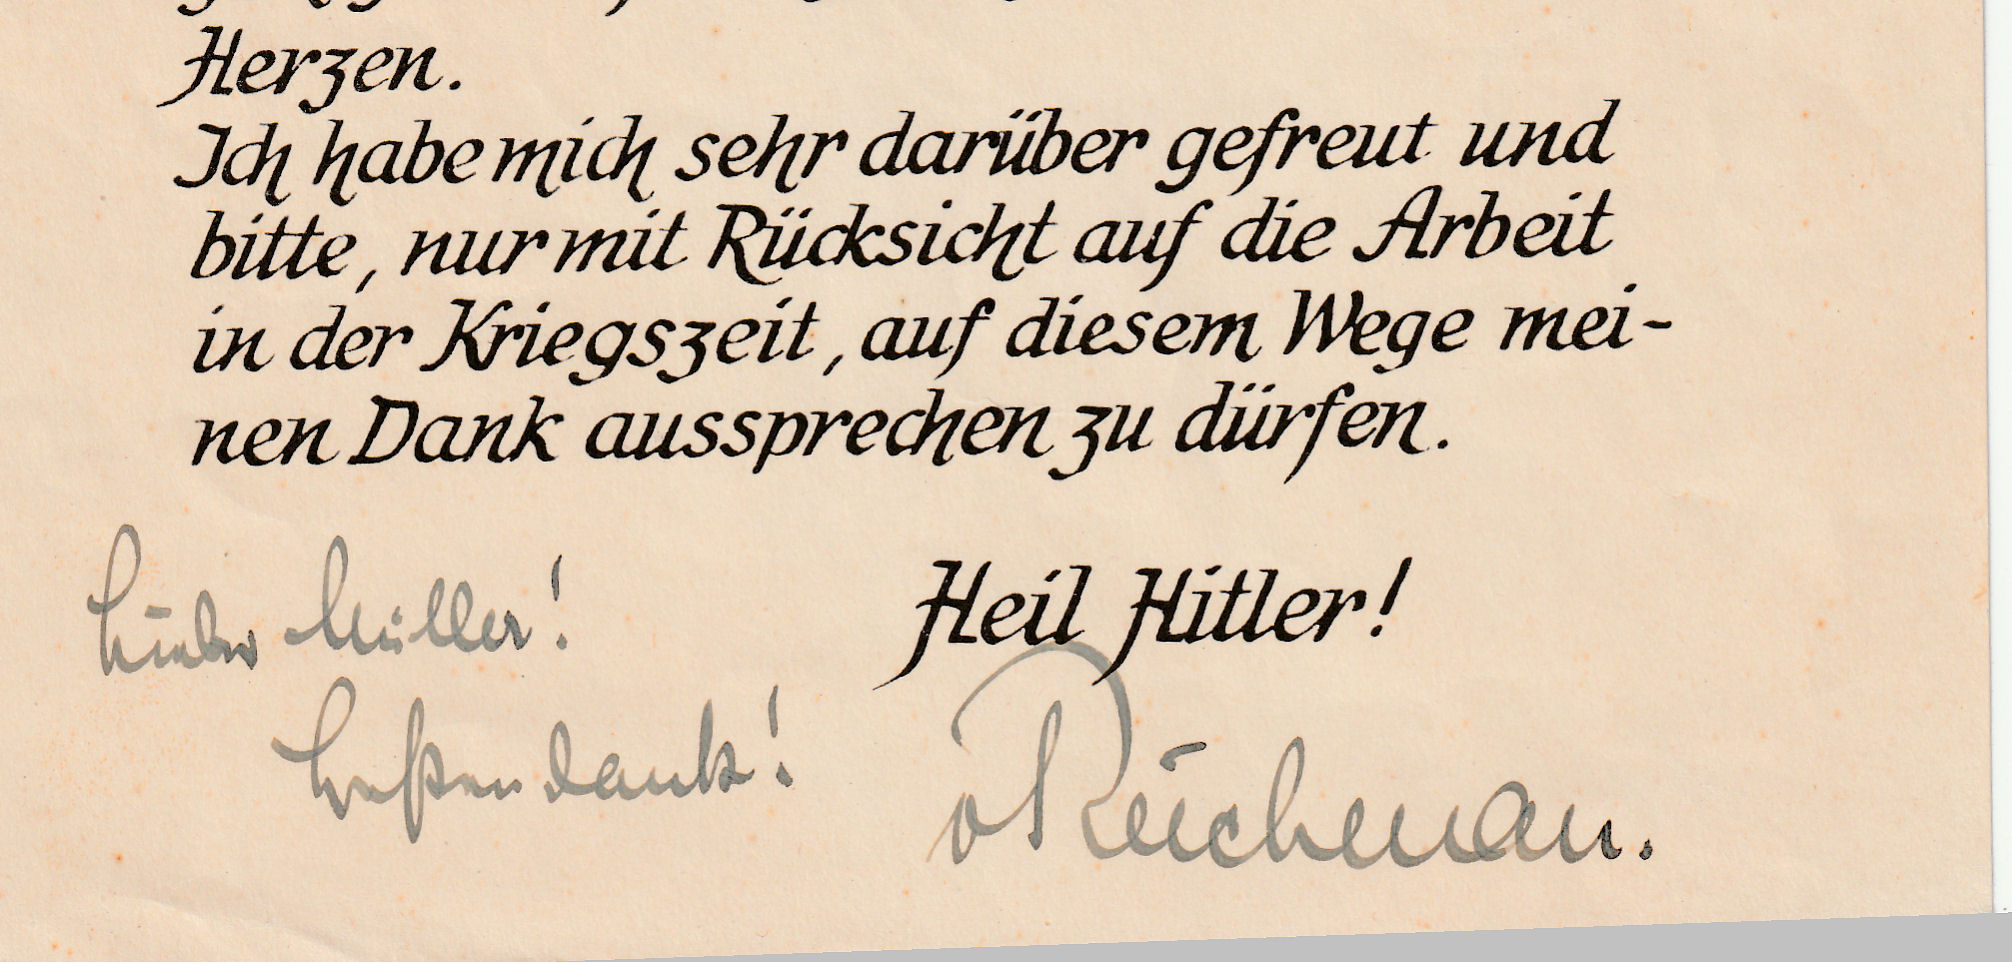 Herzen.
Ich habe mich sehr darüber gefreut und
bitte, nur mit Rücksicht auf die Arbeit
in der Kriegszeit, auf diesem Wege mei-
nen Dank aussprechen zu dürfen.
Heil Hitler!
Lieber Müller!
Besten Dank!
v Reichenau.